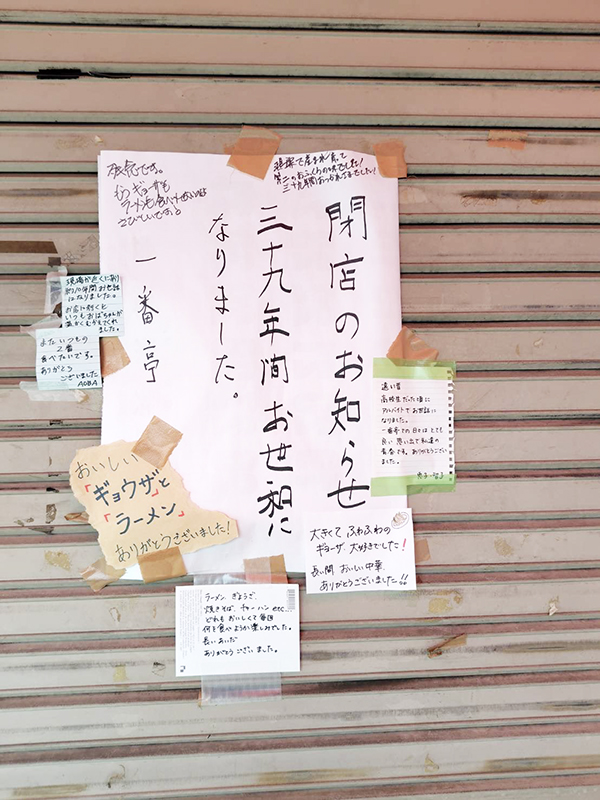 閉店のお知らせ
三十九年間お世和に
なりました。
一番亭
残念です。
もうギョーザも
ラーメンも食べれないのは
さびしいですね
現場で産まれ育って
第二のおふくろの味でした!
三十九年間おつかれさまでした!
現場が近くにあり
約10年間お世話
になりました。
お店に行くと
いつもおばちゃんが
温かくむかえてくれ
ました。
またいつもの
2番
食べたいです。
ありがとう
ございました
AOBA
おいしい
「ギョウザ」と
「ラーメン」
ありがとうございました!
遠い昔
高校生だった頃に
アルバイトでお世話に
なりました。
一番亭での日々はとても
良い思い出で私達の
青春です。ありがとうござい
ました。
大きくてふわふわの
ギョーザ大好きでした!
長い間おいしい中華
ありがとうございました!!
ラーメン、ぎょうざ、
焼きそば、チャーハンetc...
どれもおいしくて毎回
何を食べようか楽しみでした。
長いあいだ
ありがとうございました。